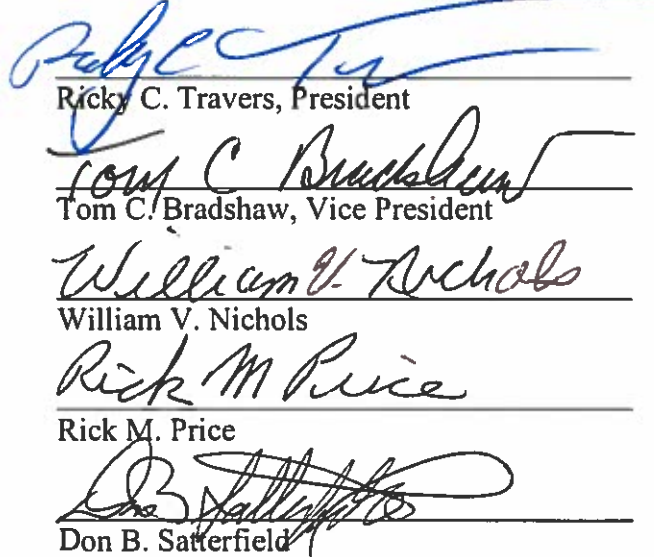 Ricky C. Travers
Ricky C. Travers, President
Tom C Bradshaw
Tom C. Bradshaw, Vice President
William V. Nichols
William V. Nichols
Rick M Price
Rick M. Price
Don B. Satterfield
Don B. Satterfield